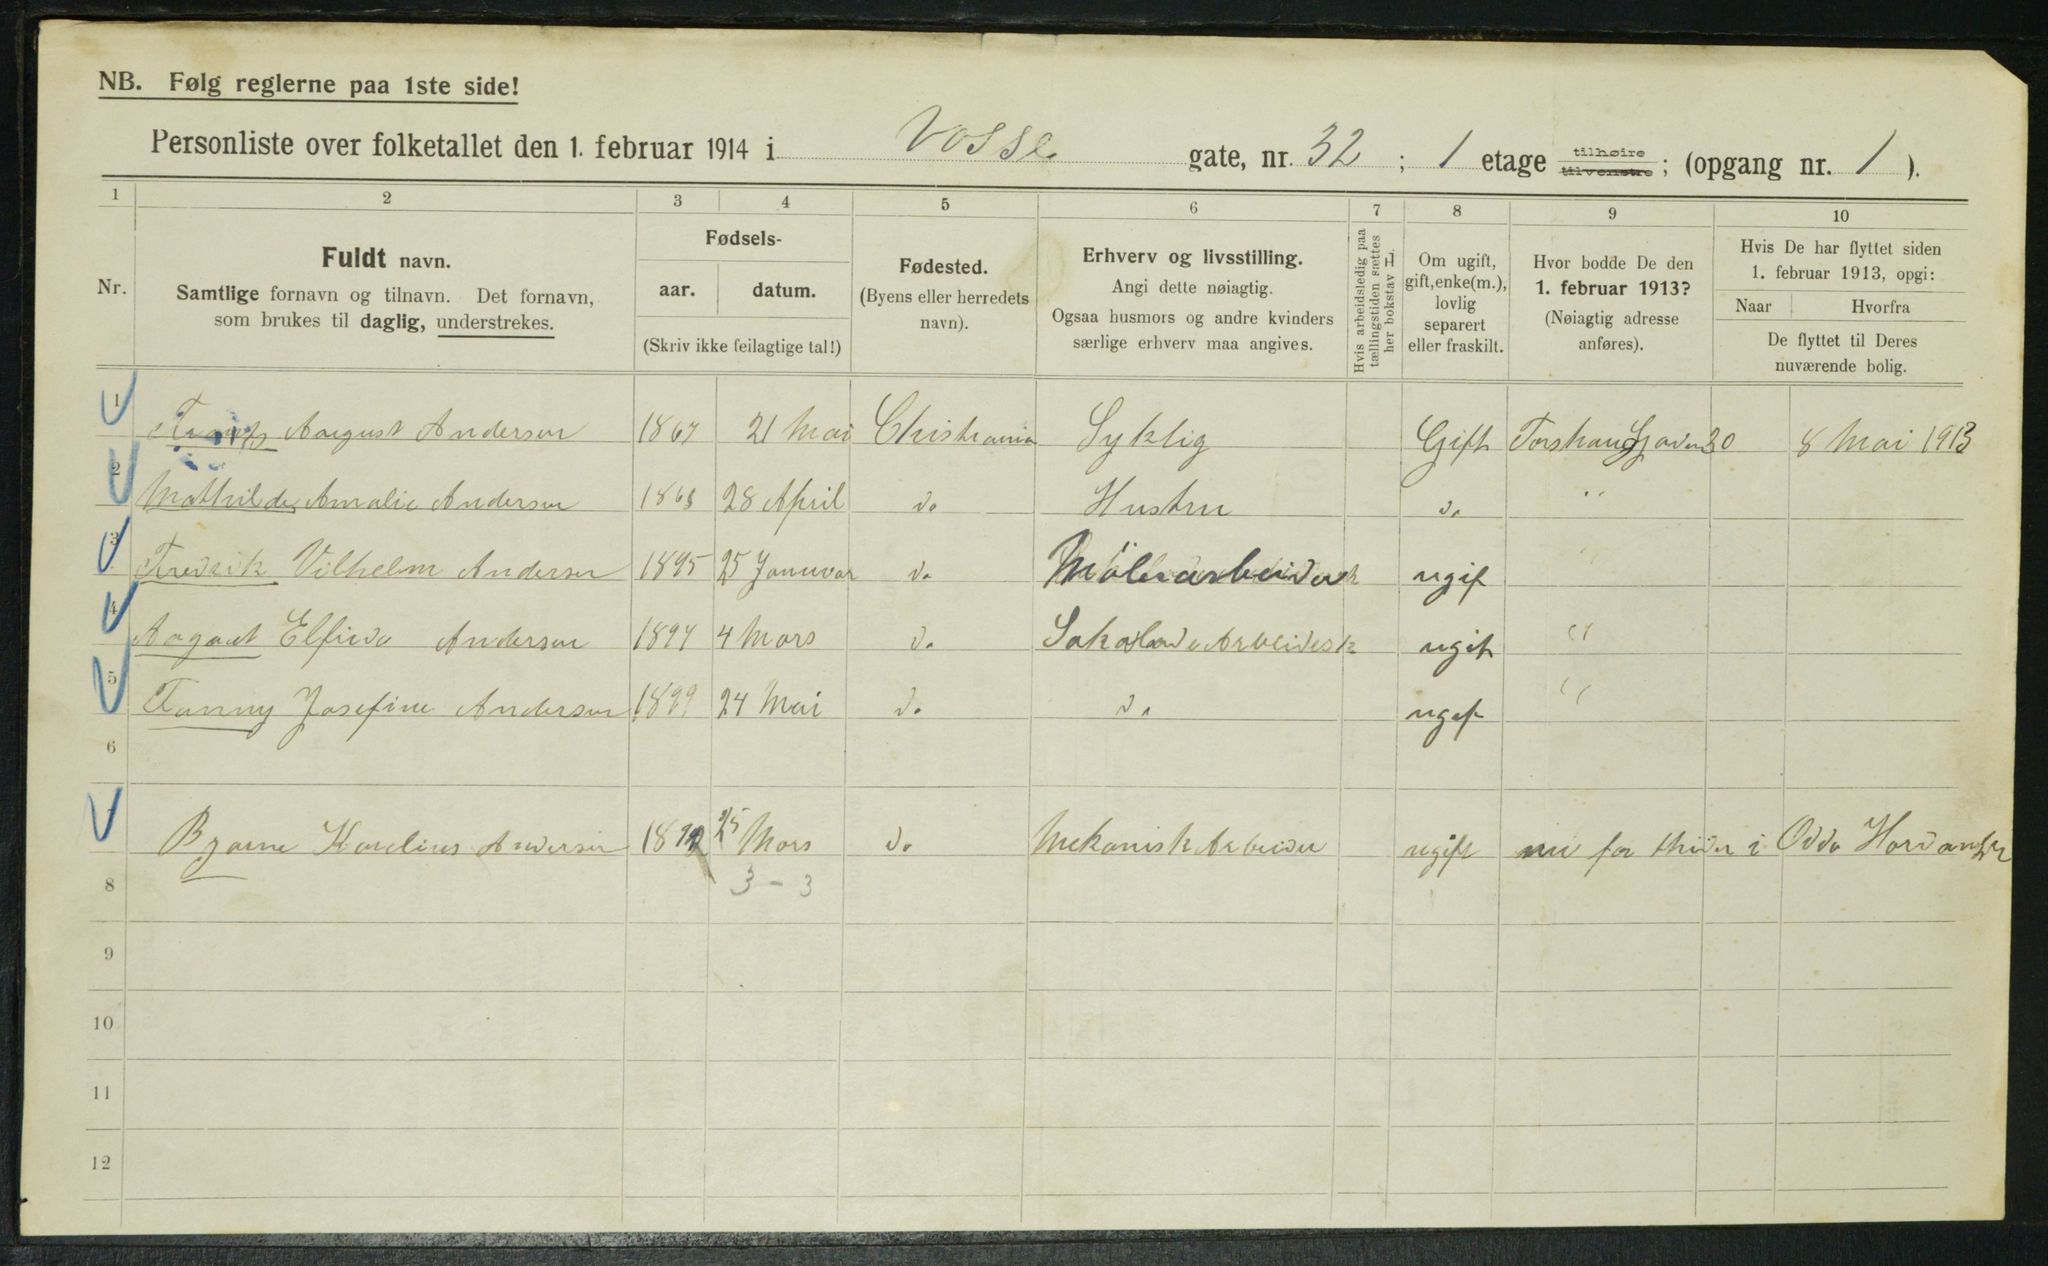 NB. Følg reglerne paa 1ste side!
Personliste over folketallet den 1. februar 1914 i Vosse gate, nr. 32 ; 1 etage tilhøire tilvenstre ; (opgang nr. 1 ).
1 2 3 4 5 6 7 8 9 10
Nr.
Fuldt navn.
Samtlige fornavn og tilnavn. Det fornavn,
som brukes til daglig, understrekes.
Fødsels-
aar. datum.
(Skriv ikke feilagtige tal!)
Fødested.
(Byens eller herredets
navn).
Erhverv og livsstilling.
Angi dette nøiagtig.
Ogsaa husmors og andre kvinders
særlige erhverv maa angives.
Hvis arbeidsledig paa
tællingstiden sættes
her bokstav L.
Om ugift,
gift, enke(m.),
lovlig
separert
eller fraskilt.
Hvor bodde De den
1. februar 1913?
(Nøiagtig adresse
anføres).
Hvis De har flyttet siden
1. februar 1913, opgi:
Naar Hvorfra
De flyttet til Deres
nuværende bolig.
1 August Andersen 1867 21 Mai Christiania Syklig Gift 8 Mai 1913
2 Mathilde Amalie Andersen 28 April do Hustru do "
3 Fredrik Vilhelm Andersen 1895 25 Januvar do ugif "
4 Aagaat Elfrida Andersen 1897 4 Mars do ugift "
5 Fanny Josefine Andersen 1899 24 Mai do do ugif "
6
7 Bjarne Karelius Andersen 25 Mars do Mekanisk Arbeider ugift nu for thiden i Odda Hardanger
3 - 3
8
9
10
11
12